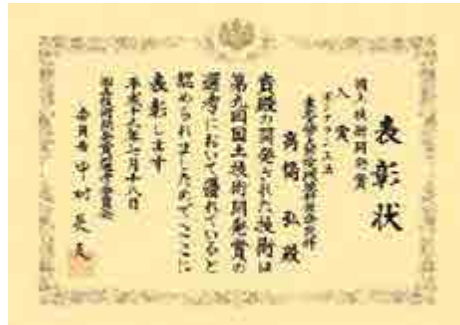 表彰状
国土技術開発賞
入賞
ボンテラン工法
東北大学大学院環境科学研究科
高橋 弘 殿
貴殿の開発された技術は
第九回国土技術開発賞の
選考において優れていると
認められましたのでここに
表彰します
平成十九年七月十八日
国土技術開発賞選考委員会
委員長 中村 英夫